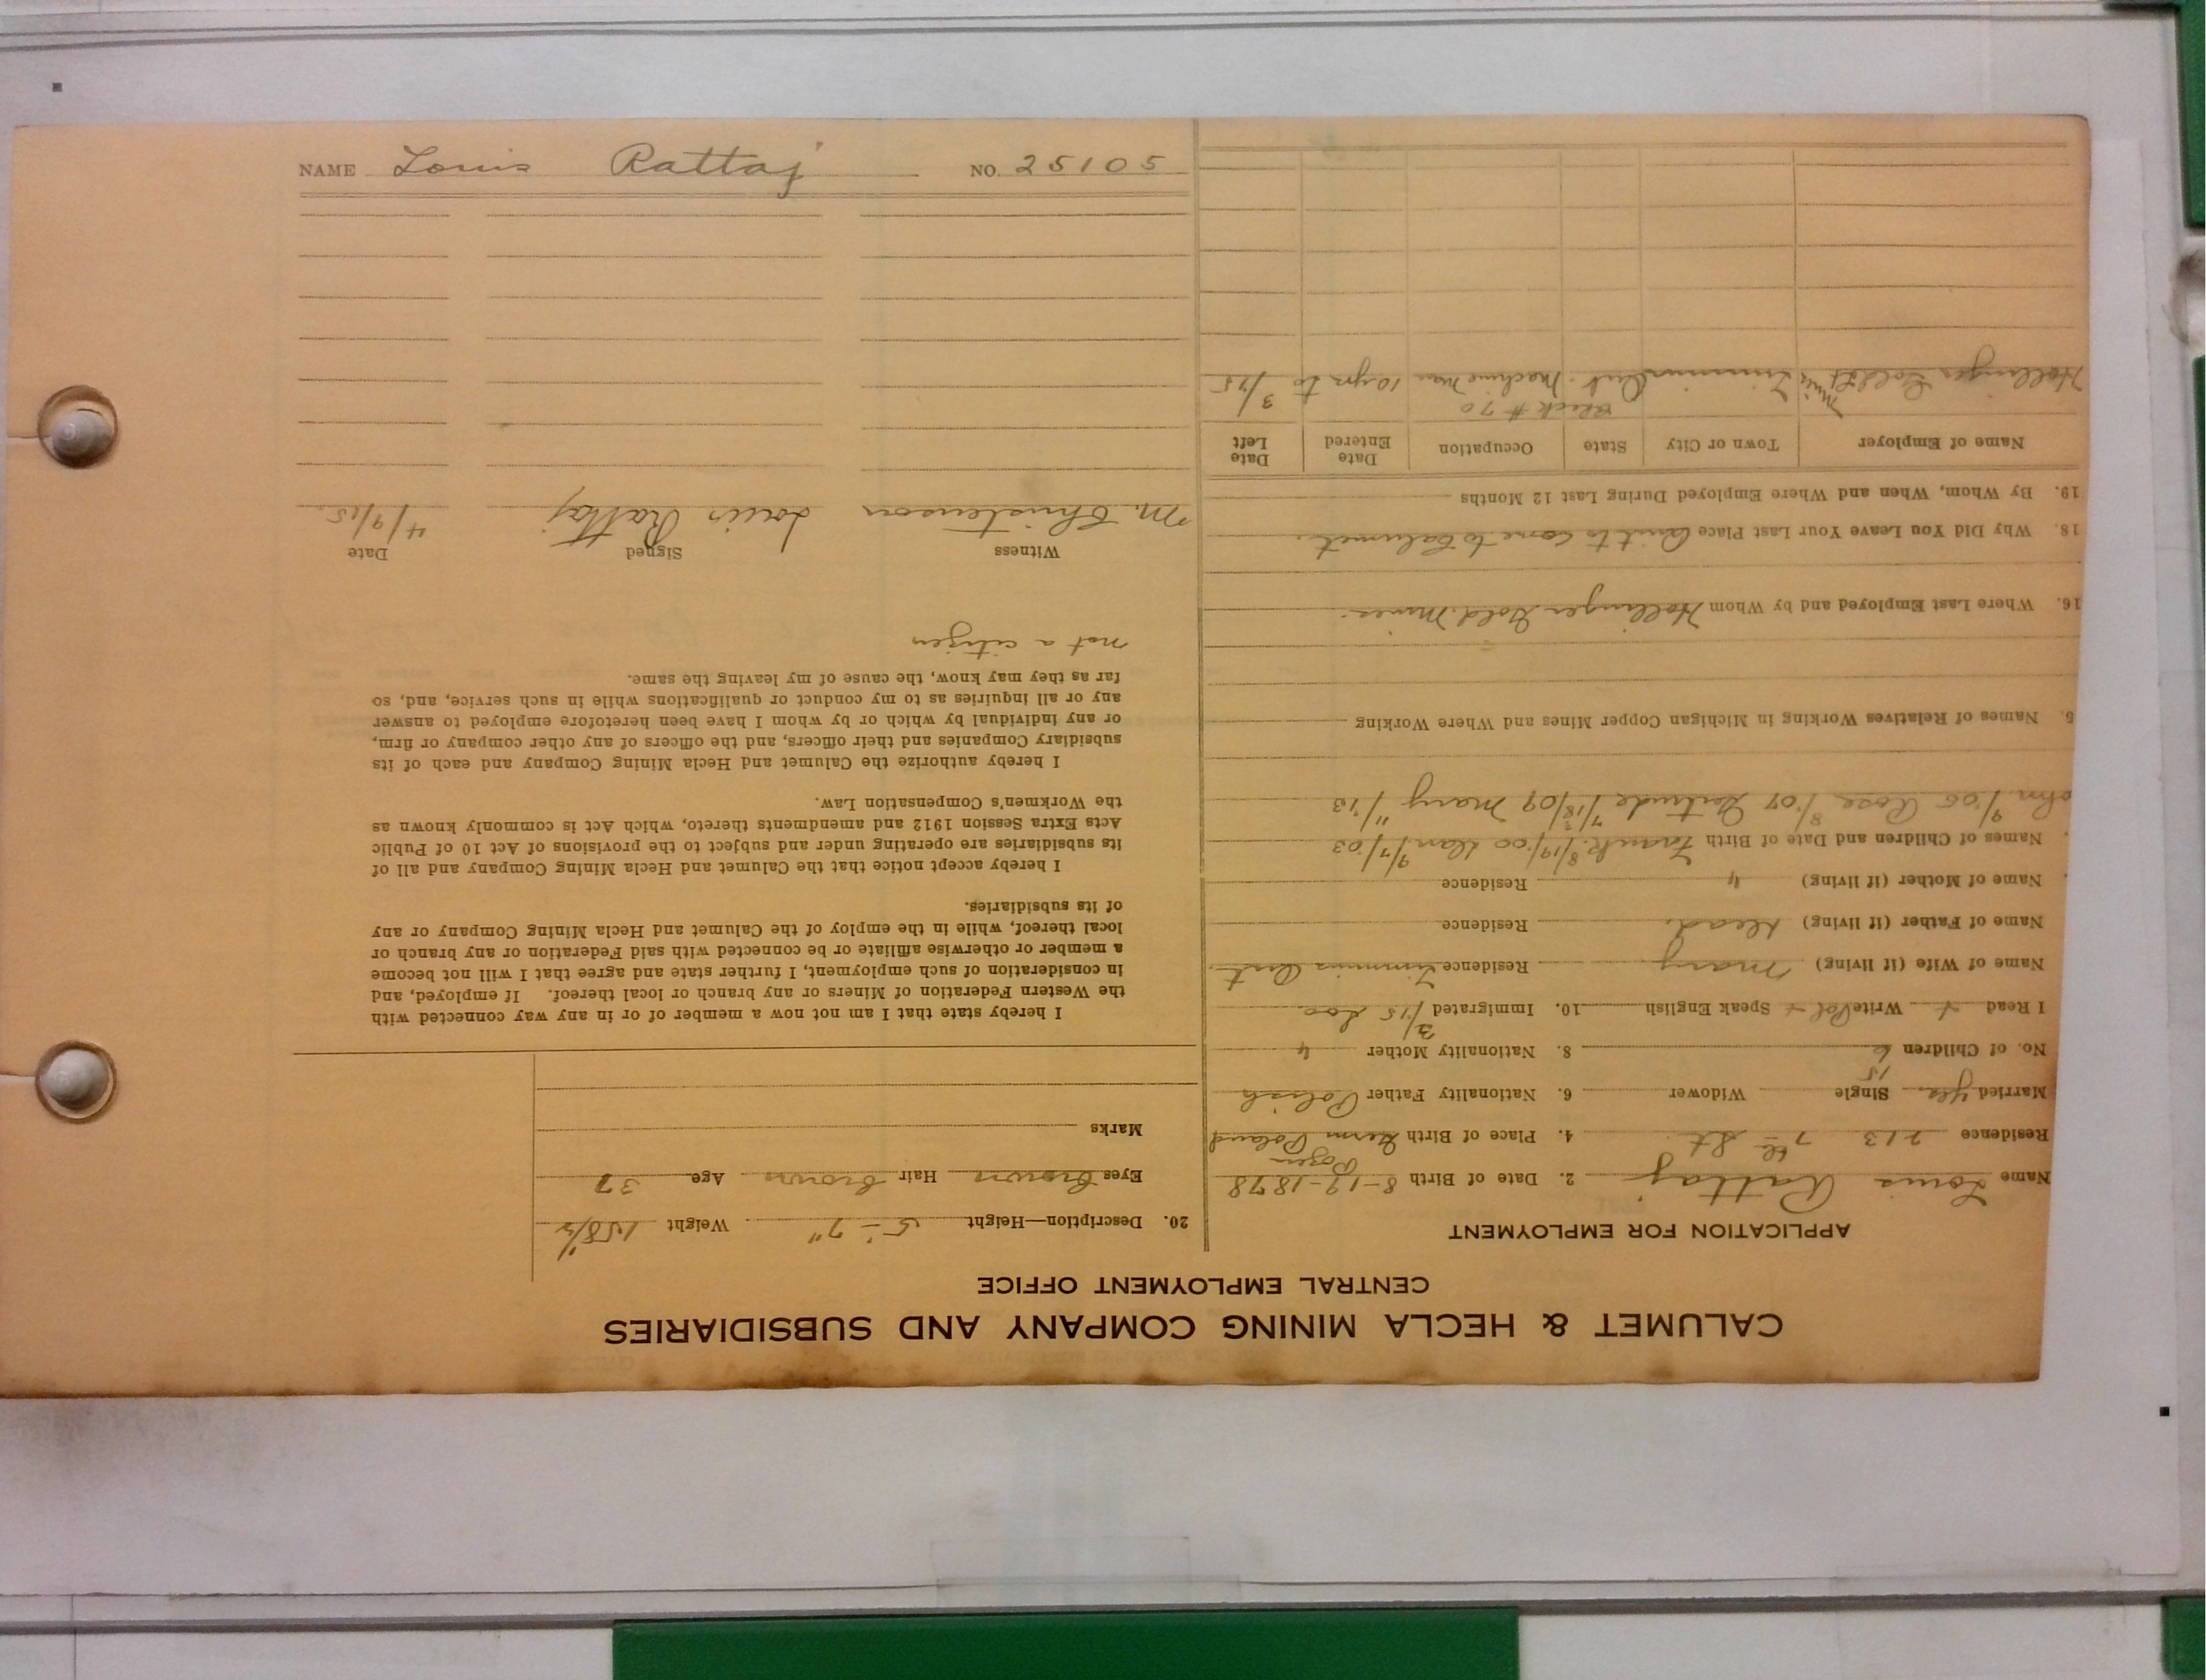 NAME Louis Rattaj NO. 25105
CALUMET & HECLA MINING COMPANY AND SUBSIDIARIES
CENTRAL EMPLOYMENT OFFICE
APPLICATION FOR EMPLOYMENT
Name Louis Rattaj 2. Date of Birth 8-19-1878
Residence 713 7th St 4. Place of Birth Posen Germ Poland
Married Yes 15 Single Widower 6. Nationality Father Polish
No. of Children 6 8. Nationality Mother "
I Read + Write Pol + Speak English 10. Immigrated 3/15 Soo
Name of Wife (if living) Mary Residence Timmins Ont.
Name of Father (if living) Dead. Residence
Name of Mother (if living) " Residence
Names of Children and Date of Birth Frank 8/19/00 9/7/03
ohn 9/05 Rose 8/07 Gertrude 7/18/09 Mary 11/13
5. Names of Relatives Working in Michigan Copper Mines and Where Working
16. Where Last Employed and by Whom Hollinger Gold Mines.
18. Why Did You Leave Your Last Place Quit to come to Calumet.
19. By Whom, When and Where Employed During Last 12 Months
Name of Employer Town or City State Occupation Date Entered Date Left
#70
Hollinger Gold Mines Timmins Ont. Machine Man 10 yrs to 3/25
20. Description—Height 5'-7" Weight 158
Eyes brown Hair brown Age 37
Marks
I hereby state that I am not now a member of or in any way connected with
the Western Federation of Miners or any branch or local thereof. If employed, and
in consideration of such employment, I further state and agree that I will not become
a member or otherwise affiliate or be connected with said Federation or any branch or
local thereof, while in the employ of the Calumet and Hecla Mining Company or any
of its subsidiaries.
I hereby accept notice that the Calumet and Hecla Mining Company and all of
its subsidiaries are operating under and subject to the provisions of Act 10 of Public
Acts Extra Session 1912 and amendments thereto, which Act is commonly known as
the Workmen's Compensation Law.
I hereby authorize the Calumet and Hecla Mining Company and each of its
subsidiary Companies and their officers, and the officers of any other company or firm,
or any individual by which or by whom I have been heretofore employed to answer
any or all inquiries as to my conduct or qualifications while in such service, and, so
far as they may know, the cause of my leaving the same.
not a citizen
Witness Signed Date
M. Christenson Louis Rattaj 4/9/15.